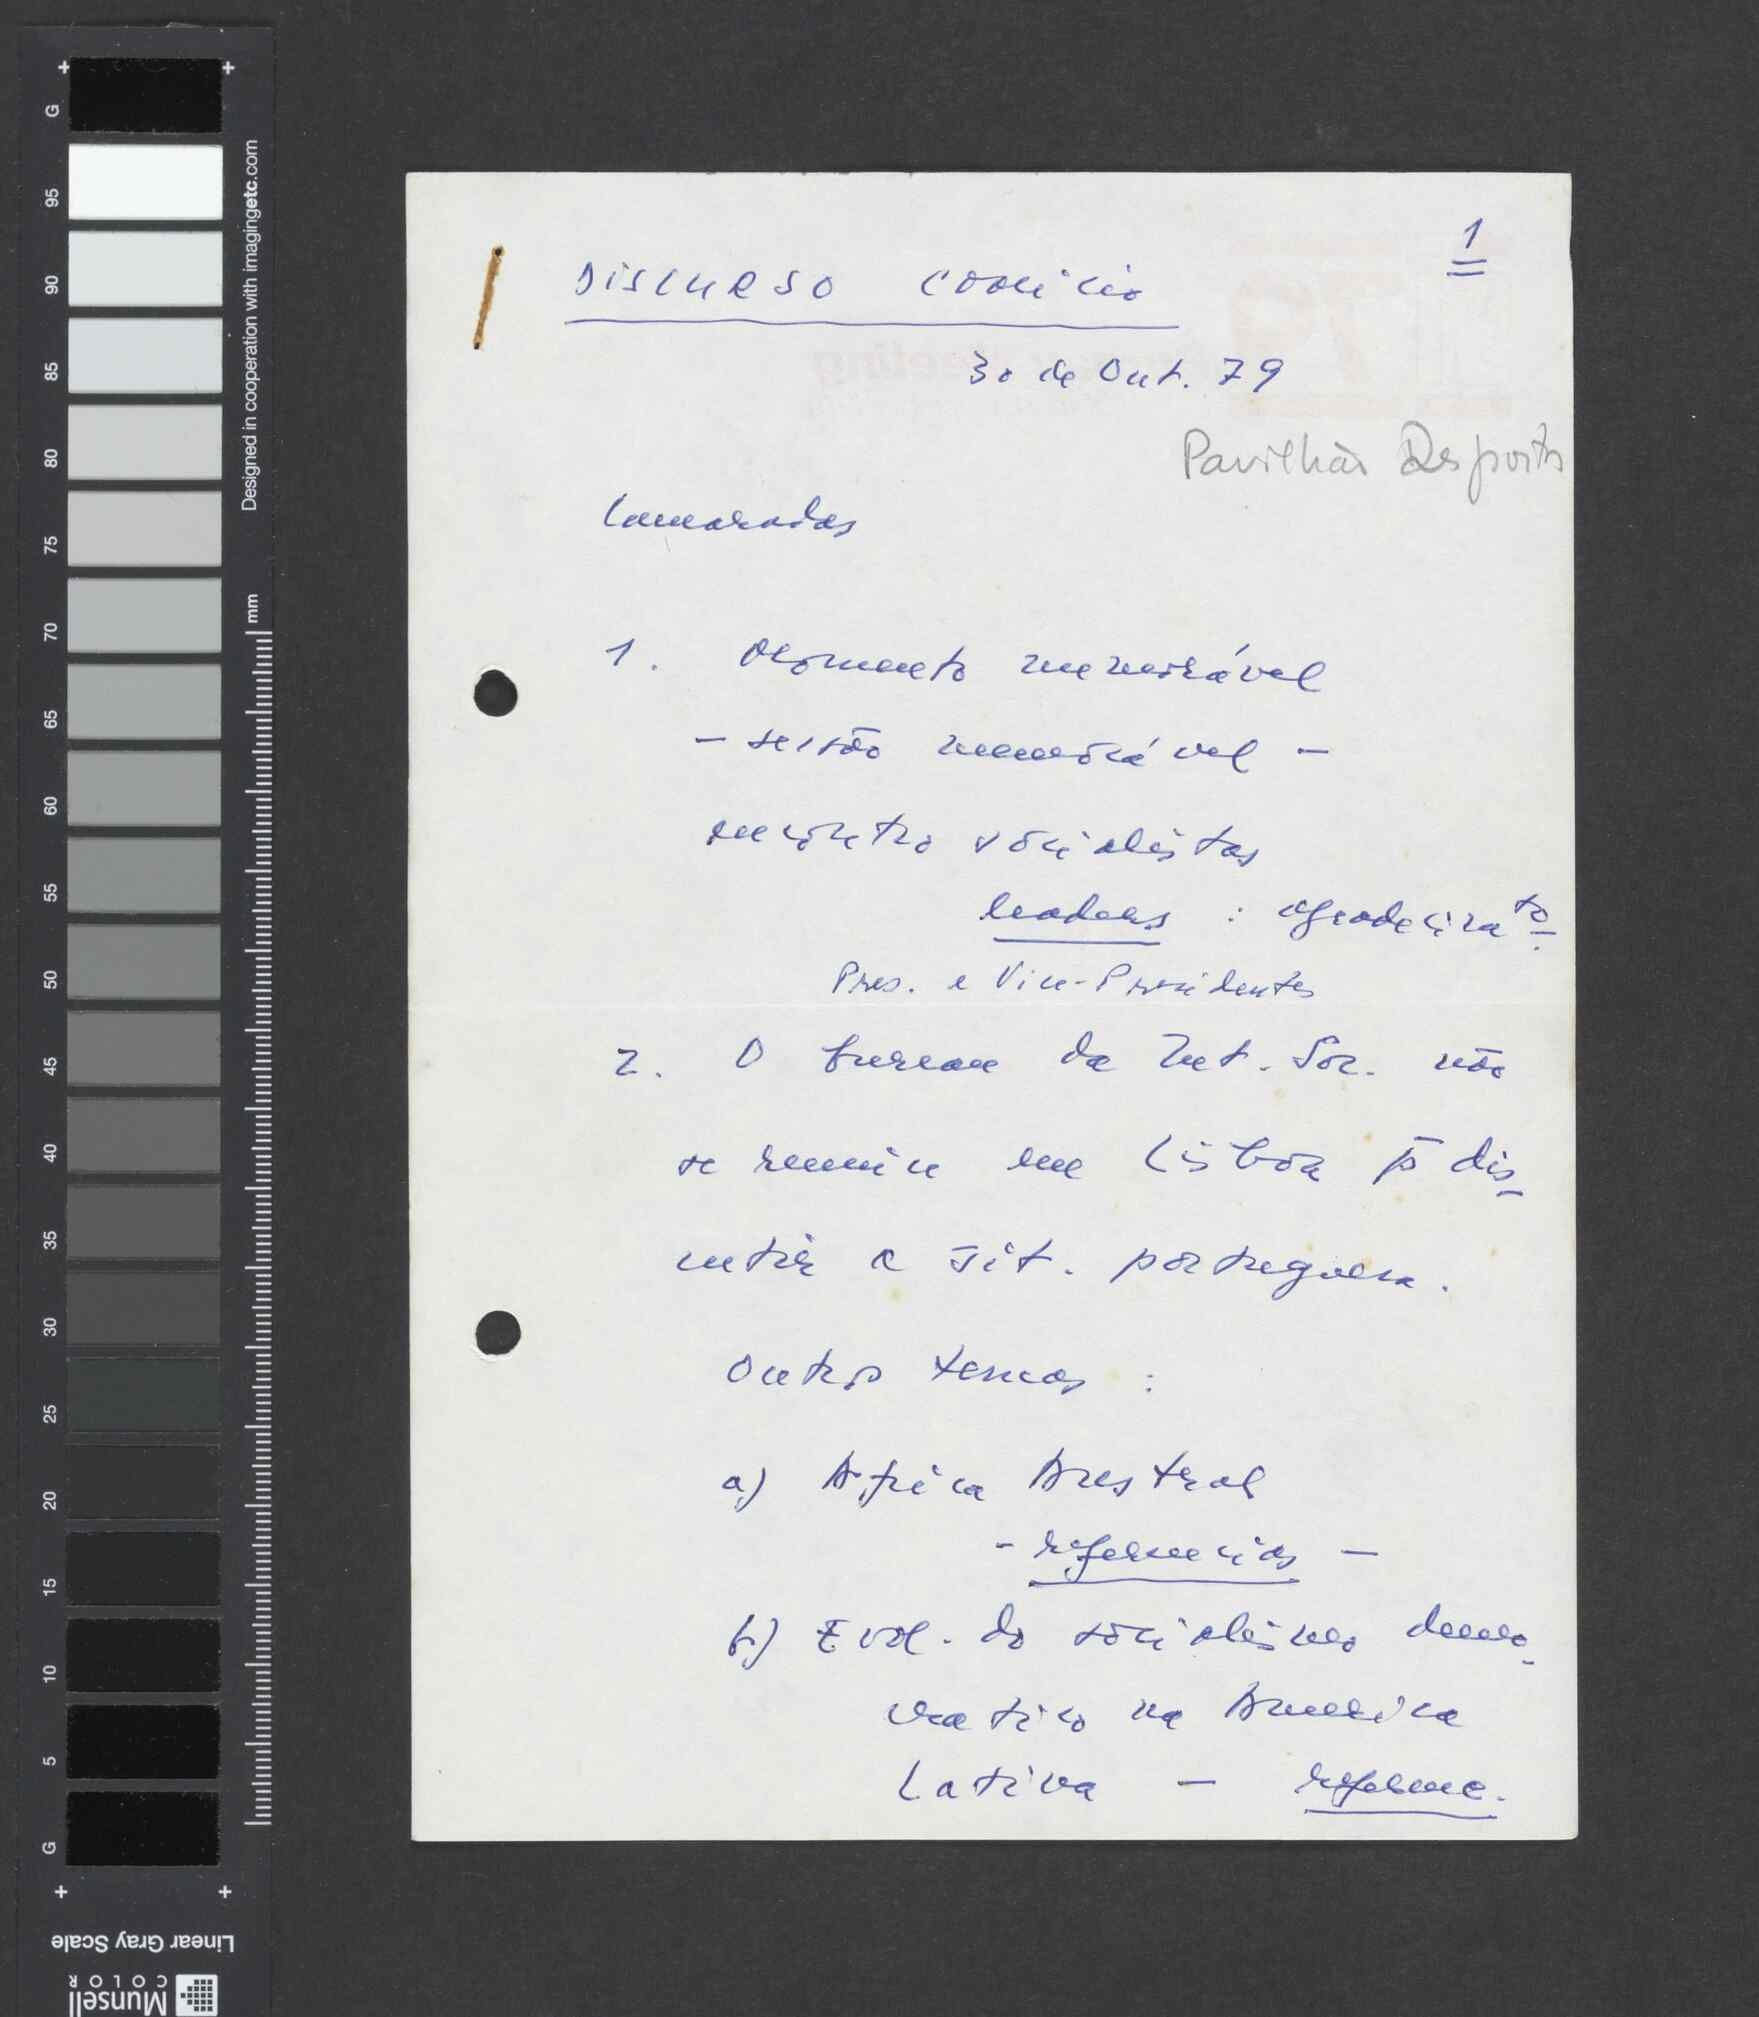 1
DISCURSO COMÍCIO
30 de Out. 79
Pavilhão Desportos
Camaradas
1. Momento memorável
- sessão memorável -
encontro socialistas
leaders : agradecima<sup>to</sup>.
Pres. e Vice-Presidentes
2. O bureau da Int. Soc. não
se reuniu em Lisboa p̄ dis-
cutir a sit. portuguesa.
Outros temas :
a) Africa Austral
- referencias -
b) Evol. do socialismo demo-
cratico na America
Latina - referenc.
G
95
90
85
80
75
70
65
60
55
50
45
40
35
30
25
20
15
10
5
G
Designed in cooperation with imagingetc.com
mm
Linear Gray Scale
Munsell
COLOR